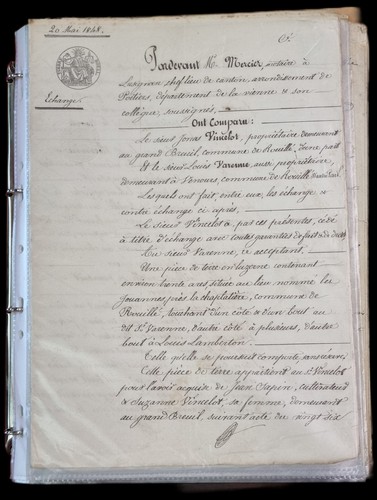 20 Mai 1848.
Echange
Pardevant Me. Mercier, notaire à
Lusignan chef lieu de canton, arrondissement de
Poitiers, département de la vienne et son
collègue, soussignés,
Ont Comparu:
Le sieur Jonas Vincelot, propriétaire demeurant
au grand Breuil, commune de Rouillé, d'une part
Et le sieur Louis Varenne, aussi propriétaire,
demeurant à Venours, commune de Rouillé, d'autre part
Lesquels ont fait, entre eux, les échange et
contre échange ci après.
Le sieur Vincelot a par ces présentes, cédé
à titre d'échange avec toutes garanties de fait & de droit
Au sieur Varenne, ce acceptant.
Une pièce de terre en luzerne contenant
environ trente ares située au lieu nommé les
Jouannes près la chaplatière, commune de
Rouillé, touchant d'un côté & d'un bout au
dit Sr. Varenne, d'autre côté à plusieurs, d'autre
bout à Louis Lamberton.
Telle qu'elle se poursuit comporte, sans réserve.
Cette pièce de terre appartient au Sr. Vincelot
pour l'avoir acquise de Jean Papin, cultivateur
& Suzanne Vincelot, sa femme, demeurant
au grand Breuil, suivant acte du vingt six